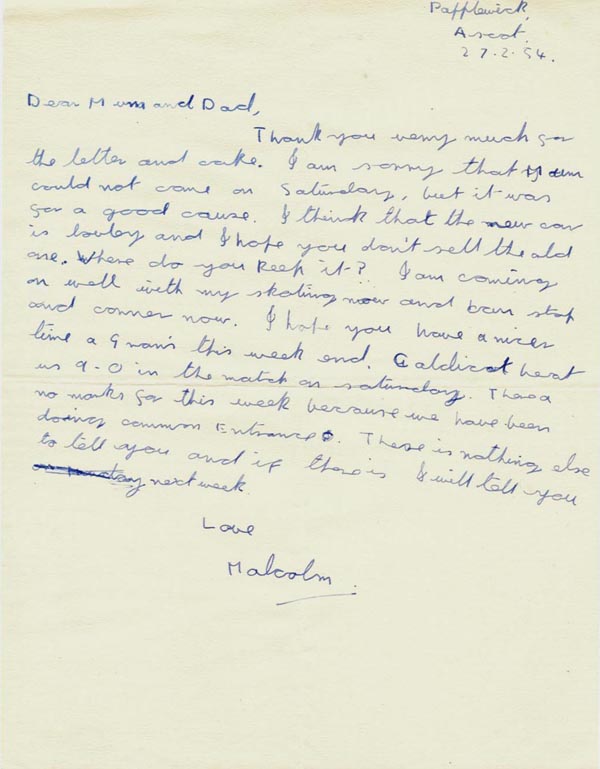 Papplewick,
Ascot.
27.2.54.
Dear Mum and Dad,
Thank you very much for
the letter and cake. I am sorry that Mum
could not come on Saturday, but it was
for a good cause. I think that the new car
is lovley and I hope you don't sell the old
one. Where do you keep it? I am coming
on well with my skating now and can stop
and corner now. I hope you have a nicer
time a Gran's this week end. Caldicot beat
us 9-0 in the match on saturday. There
no marks for this week because we have been
doing common Entrance. There is nothing else
to tell you and if there is I will tell you
next week.
Love
Malcolm.